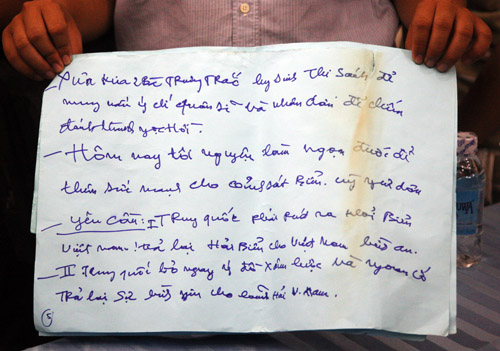 - Xưa kia 2 Bà Trưng Trắc hy sinh Thi Sách để
nung nấu ý chí quân sĩ và nhân dân để chiến
đánh
- Hôm nay tôi nguyện làm ngọn đuốc để
thêm sức mạnh cho cảnh sát Biển. ngư dân
- Yêu cầu: I Trung quốc phải rút ra khỏi Biển
Việt nam! trả lại Hải Biển cho Việt Nam bình an.
- II Trung quốc bỏ ngay ý đồ xâm lược và ngoan cố
Trả lại sự bình yên cho lãnh Hải V. Nam.
5